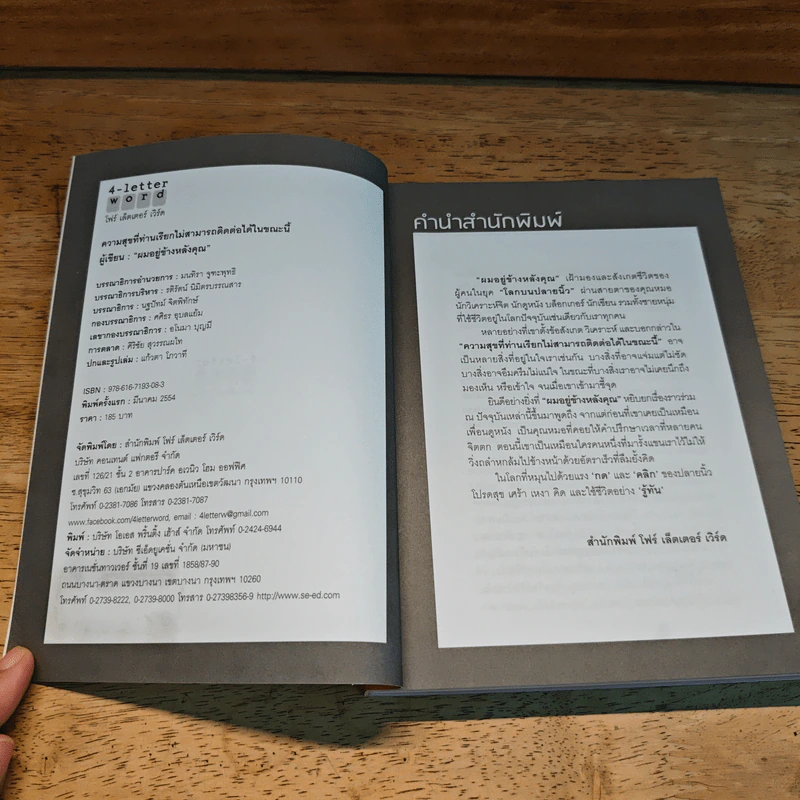 4-letter
word
โฟร์ เล็ตเตอร์ เวิร์ด
ความสุขที่ท่านเรียกไม่สามารถติดต่อได้ในขณะนี้
ผู้เขียน : "ผมอยู่ข้างหลังคุณ"
บรรณาธิการอำนวยการ : มนทิรา จูฑะพุทธิ
บรรณาธิการบริหาร : รติรัตน์ นิมิตรบรรณสาร
บรรณาธิการ : นฐปัทม์ จิตพิทักษ์
กองบรรณาธิการ : ศศิธร อุบลแย้ม
เลขากองบรรณาธิการ : อโนมา บุญมี
การตลาด : ศิริชัย สุวรรณมโท
ปกและรูปเล่ม : แก้วตา โกวาที
ISBN : 978-616-7193-08-3
พิมพ์ครั้งแรก : มีนาคม 2554
ราคา : 185 บาท
จัดพิมพ์โดย : สำนักพิมพ์ โฟร์ เล็ตเตอร์ เวิร์ด
บริษัท คอนเทนต์ แฟกตอรี่ จำกัด
เลขที่ 126/21 ชั้น 2 อาคารปาร์ค อเวนิว โฮม ออฟฟิศ
ซ.สุขุมวิท 63 (เอกมัย) แขวงคลองตันเหนือเขตวัฒนา กรุงเทพฯ 10110
โทรศัพท์ 0-2381-7086 โทรสาร 0-2381-7087
www.facebook.com/4letterword, email : 4letterw@gmail.com
พิมพ์ : บริษัท โอเอส พริ้นติ้ง เฮ้าส์ จำกัด โทรศัพท์ 0-2424-6944
จัดจำหน่าย : บริษัท ซีเอ็ดยูเคชั่น จำกัด (มหาชน)
อาคารเนชั่นทาวเวอร์ ชั้นที่ 19 เลขที่ 1858/87-90
ถนนบางนา-ตราด แขวงบางนา เขตบางนา กรุงเทพฯ 10260
โทรศัพท์ 0-2739-8222, 0-2739-8000 โทรสาร 0-27398356-9 http://www.se-ed.com
คำนำสำนักพิมพ์
"ผมอยู่ข้างหลังคุณ" เฝ้ามองและสังเกตชีวิตของ
ผู้คนในยุค "โลกบนปลายนิ้ว" ผ่านสายตาของคุณหมอ
นักวิเคราะห์จิต นักดูหนัง บล็อกเกอร์ นักเขียน รวมทั้งชายหนุ่ม
ที่ใช้ชีวิตอยู่ในโลกปัจจุบันเช่นเดียวกับเราทุกคน
หลายอย่างที่เขาตั้งข้อสังเกต วิเคราะห์ และบอกกล่าวใน
"ความสุขที่ท่านเรียกไม่สามารถติดต่อได้ในขณะนี้" อาจ
เป็นหลายสิ่งที่อยู่ในใจเราเช่นกัน บางสิ่งที่อาจแจ่มแต่ไม่ชัด
บางสิ่งอาจอึมครึมไม่แน่ใจ ในขณะที่บางสิ่งเราอาจไม่เคยนึกถึง
มองเห็น หรือเข้าใจ จนเมื่อเขาเข้ามาชี้จุด
ยินดีอย่างยิ่งที่ "ผมอยู่ข้างหลังคุณ" หยิบยกเรื่องราวร่วม
ณ ปัจจุบันเหล่านี้ขึ้นมาพูดถึง จากแต่ก่อนที่เขาเคยเป็นเหมือน
เพื่อนดูหนัง เป็นคุณหมอที่คอยให้คำปรึกษาเวลาที่หลายคน
จิตตก ตอนนี้เขาเป็นเหมือนใครคนหนึ่งที่มารั้งแขนเราไว้ไม่ให้
วิ่งถลำหกล้มไปข้างหน้าด้วยอัตราเร็วที่ลืมยั้งคิด
ในโลกที่หมุนไปด้วยแรง 'กด' และ 'คลิก' ของปลายนิ้ว
โปรดสุข เศร้า เหงา คิด และใช้ชีวิตอย่าง 'รู้ทัน'
สำนักพิมพ์ โฟร์ เล็ตเตอร์ เวิร์ด